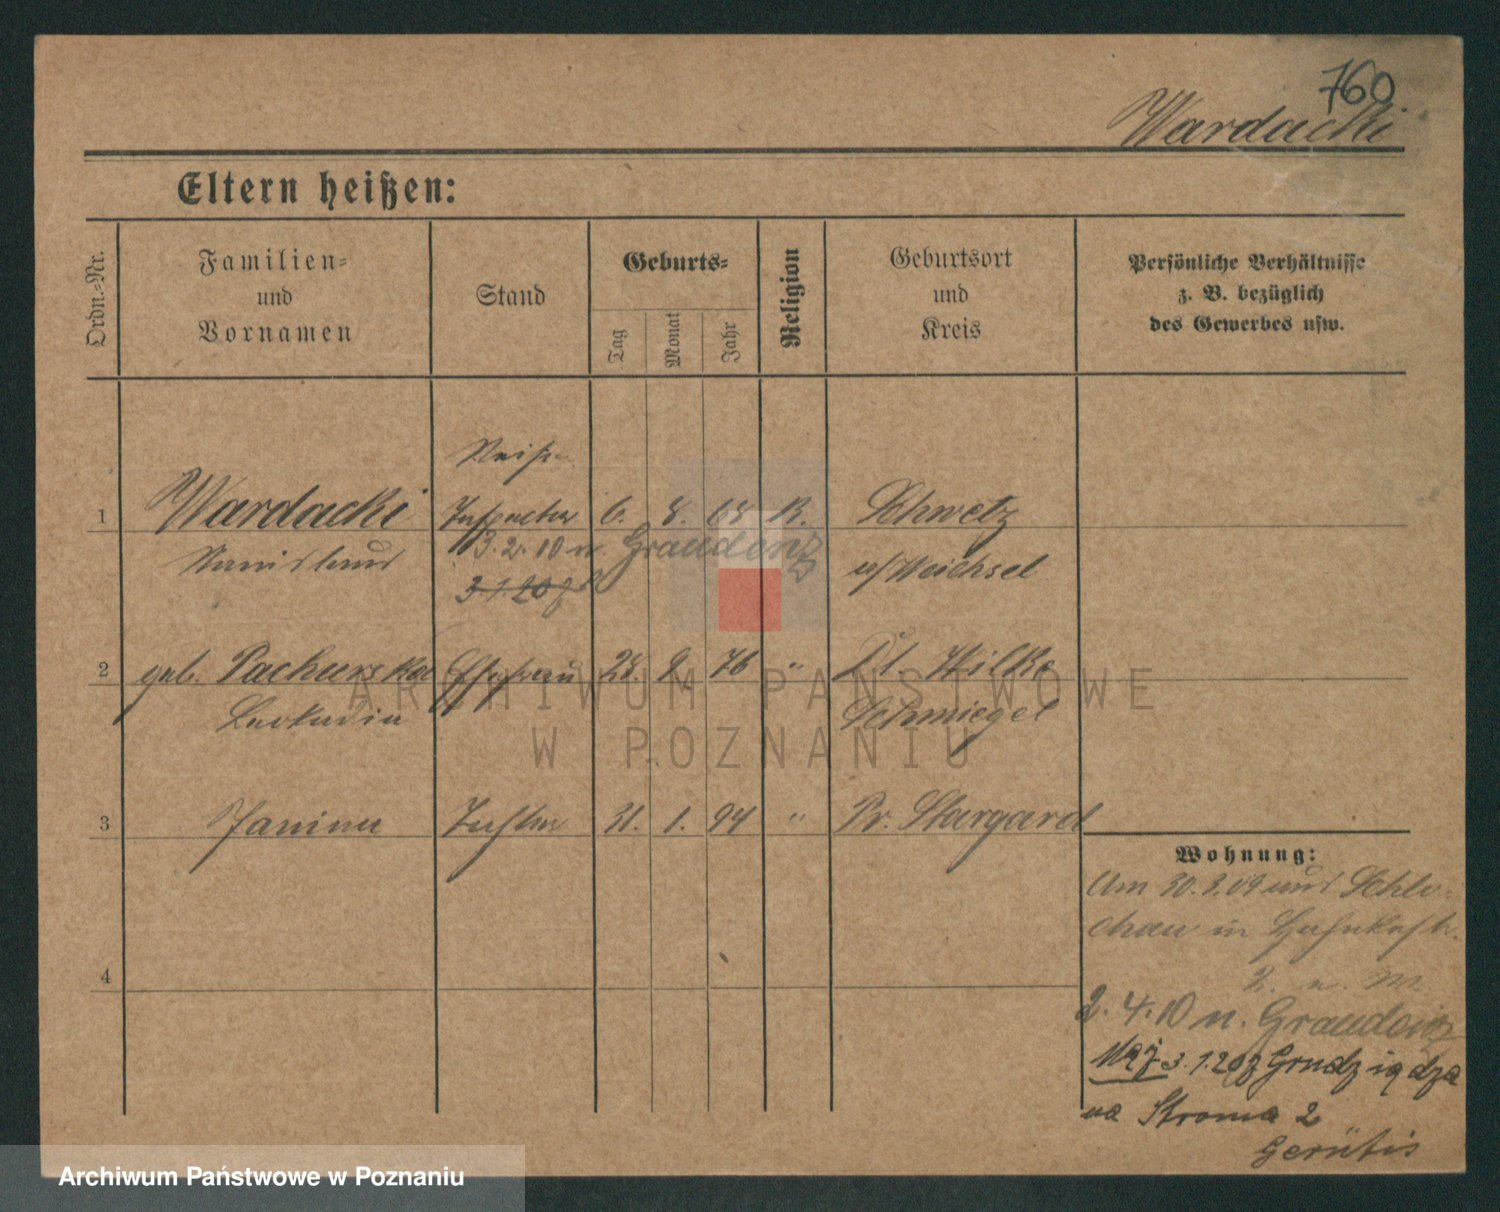 760
Wardacki
Eltern heißen:
Ordn.-Nr.
Familien-
und
Vornamen
Stand
Geburts-
Tag
Monat
Jahr
Religion
Geburtsort
und
Kreis
Persönliche Verhältnisse
z. B. bezüglich
des Gewerbes usw.
1 Wardacki 6. 8. 68 K. Schwetz
Stanislaus a/Weichsel
3.2.10 n. Graudenz
3 1.20
2 geb. Pachurska Ehefrau 28. 9. 76 " Dt. Wilke
Leokadia Schmiegel
3 Janina Tochter 31. 1. 94 " Pr. Stargard
4
Wohnung:
Um 30.3.09 und Schlo-
chau in
2. 4. 10 n. Graudenz
Mąż 3.1.20 z Grudziądza
na Stroma 2
ARCHIWUM PAŃSTWOWE
W POZNANIU
Archiwum Państwowe w Poznaniu